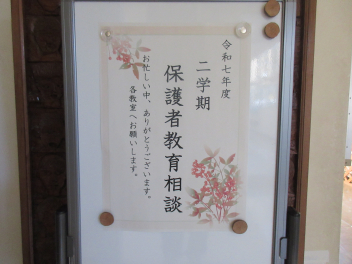 令和七年度
二学期
保護者教育相談
お忙しい中、ありがとうございます。
各教室へお願いします。